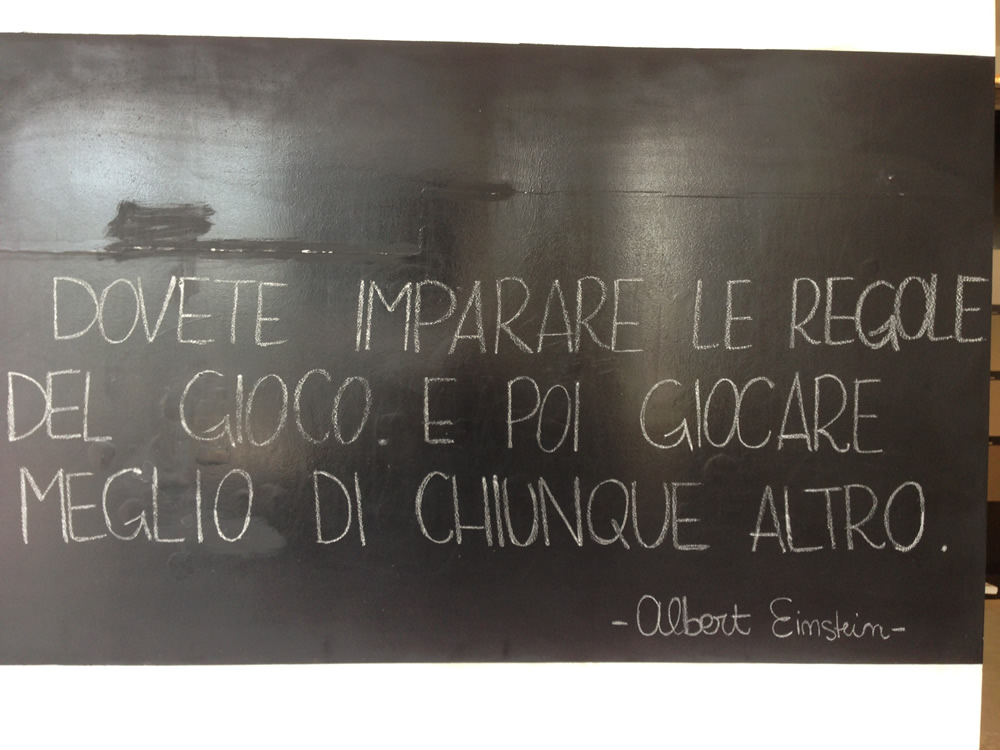 DOVETE IMPARARE LE REGOLE
DEL GIOCO. E POI GIOCARE
MEGLIO DI CHIUNQUE ALTRO.
-Albert Einstein-